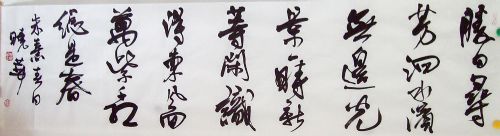 勝日尋
芳泗水濱
無邊光
景一時新
等閑識
得東風面
萬紫千紅
總是春
朱熹春日